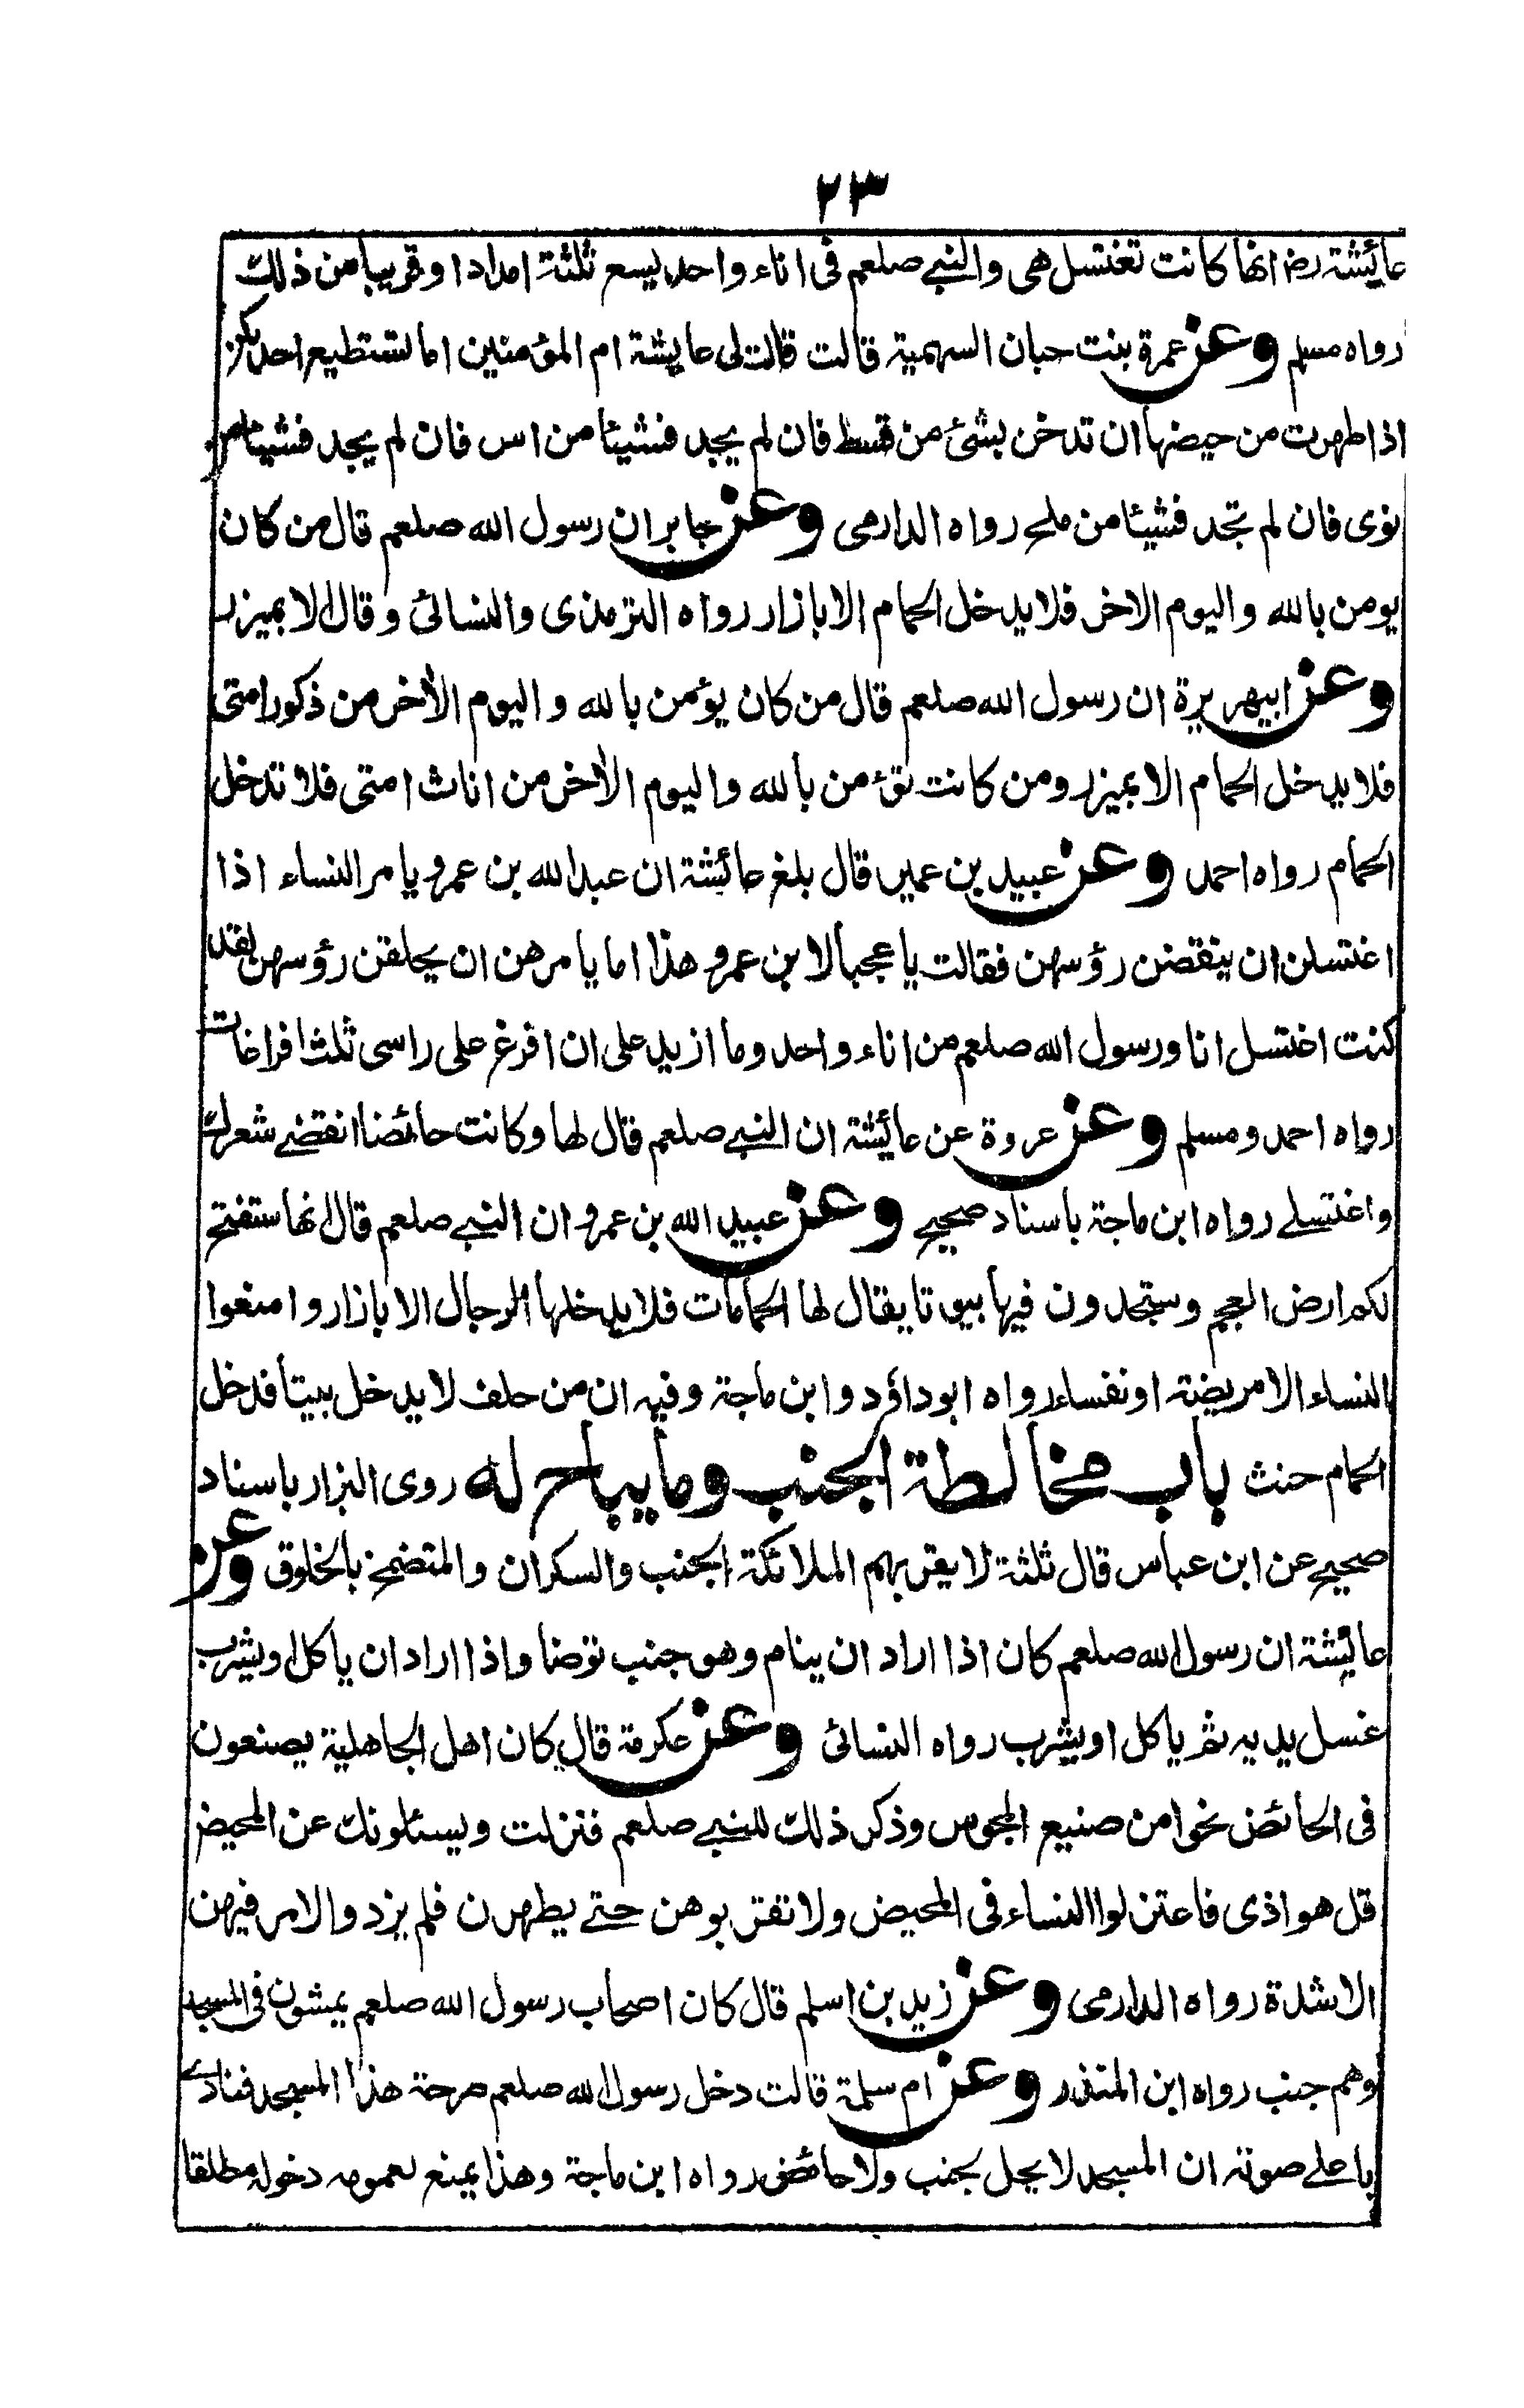 ٢٣
عائشة رض انها كانت تغتسل هى والنبى صلعم فى اناء واحد يسع ثلثة امداد او قريبا من ذلك
رواه مسلم وعن عمرة بنت حبان السهمية قالت قالت لى عايشة ام المؤمنين اما تستطيع احدىكن
اذا طهرت من حيضها ان تدخن بشئ من قسط فان لم يجد فشيئا من اس فان لم يجد فشيئا من
نوى فان لم تجد فشيئا من ملح رواه الدارمى وعن جابر ان رسول الله صلعم قال من كان
يومن بالله واليوم الاخر فلا يدخل الحمام الا بازار رواه الترمذى والنسائى وقال الا بميزر
وعن ابيهريرة ان رسول الله صلعم قال من كان يؤمن بالله واليوم الأخر من ذكور امتى
فلا يدخل الحمام الا بميزر ومن كانت تؤمن بالله واليوم الأخر من اناث امتى فلا تدخل
الحمام رواه احمد وعن عبيد بن عمير قال بلغ عائشة ان عبد الله بن عمرو يامر النساء اذا
اغتسلن ان ينقضن رؤسهن فقالت يا عجبا لابن عمرو هذا اما يامرهن ان يحلقن رؤسهن لقد
كنت اغتسل انا ورسول الله صلعم من اناء واحد وما ازيد على ان افرغ على راسى ثلث افراغات
رواه احمد ومسلم وعن عروة عن عائشة ان النبى صلعم قال لها وكانت حائضا انقضى شعرك
واغتسلى رواه ابن ماجة باسناد صحيح وعن عبيد الله بن عمرو ان النبى صلعم قال انها ستفتح
لكم ارض العجم وستجدون فيها بيوتا يقال لها الحمامات فلا يدخلها الرجال الا بازار وامنعوا
النساء الا مريضة او نفساء رواه ابو داؤد وابن ماجة وفيه ان من حلف لا يدخل بيتا فدخل
الحمام حنث باب مخالطة الجنب وما يباح له روى البزار باسناد
صحيح عن ابن عباس قال ثلثة لا يقربهم الملائكة الجنب والسكران والمتضمخ بالخلوق وعن
عايشة ان رسول الله صلعم كان اذا اراد ان ينام وهو جنب توضا واذا اراد ان ياكل او يشرب
غسل يديه ثم ياكل او يشرب رواه النسائى وعن عكرمة قال كان اهل الجاهلية يصنعون
فى الحائض نحوا من صنيع المجوس وذكر ذلك للنبى صلعم فنزلت ويسئلونك عن المحيض
قل هو اذى فاعتزلوا النساء فى المحيض ولا تقربوهن حتى يطهرن فلم يزد والامر فيهن
الا شدة رواه الدارمى وعن زيد بن اسلم قال كان اصحاب رسول الله صلعم يمشون فى المسجد
وهم جنب رواه ابن المنذر وعن ام سلمة قالت دخل رسول الله صلعم صرحة هذا المسجد فنادى
باعلى صوته ان المسجد لا يحل بجنب ولا حائض رواه ابن ماجة وهذا يمنع لعمومه دخوله مطلقا